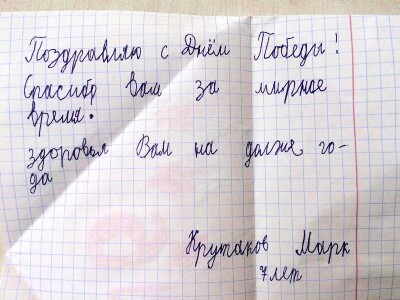 Поздравляю с Днём Победы!
Спасибо вам за мирное
время.
здоровья Вам на долже го-
да
Крутаков Марк
7 лет